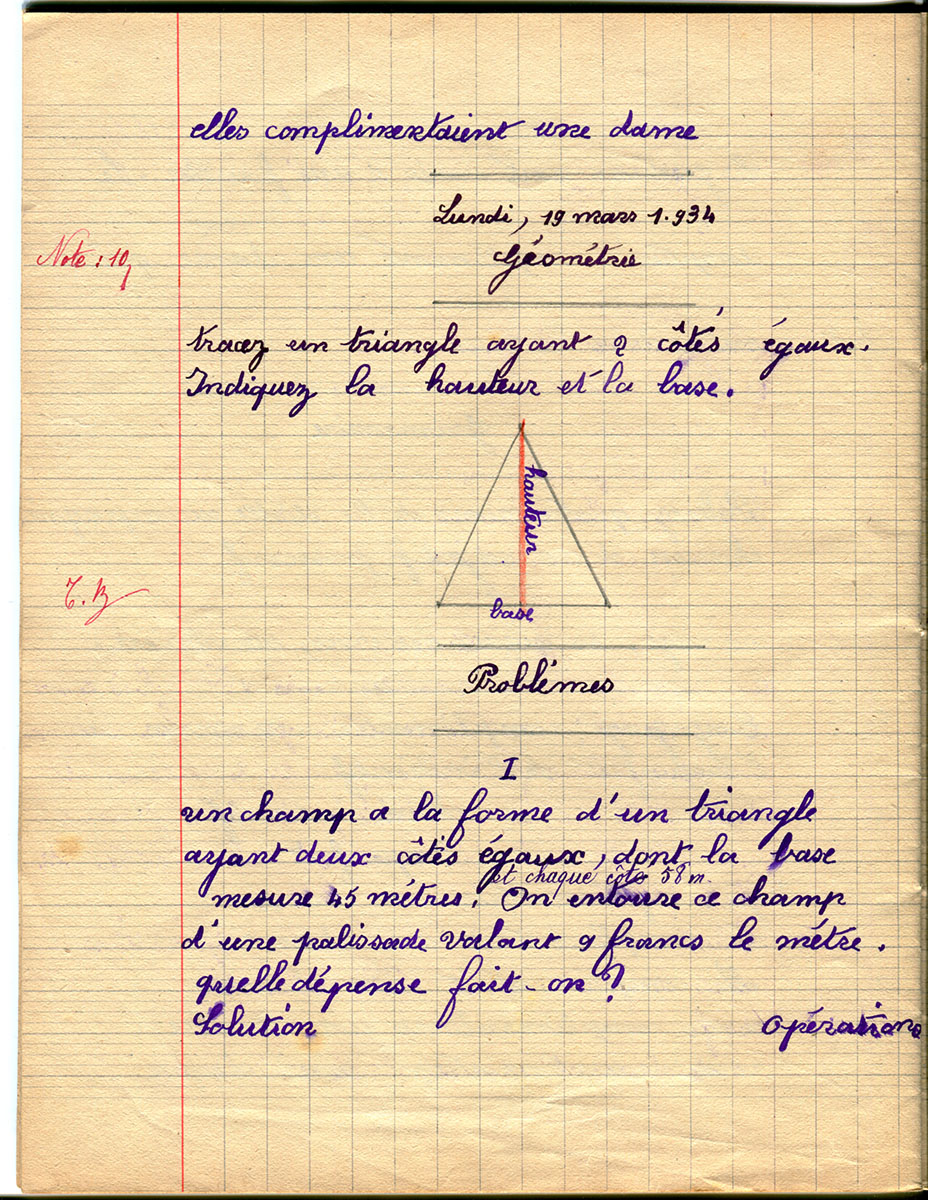 elles complimentaient une dame
Lundi, 19 mars 1.934
Note : 10
Géométrie
tracez un triangle ayant 2 côtés égaux.
Indiquez la hauteur et la base.
hauteur
T. B
base
Problèmes
I
un champ a la forme d'un triangle
ayant deux côtés égaux, dont la base
et chaque côté 58 m.
mesure 45 métres. On entoure ce champ
d'une palissade valant 9 francs le métre.
quelle dépense fait-on ?
Solution opérations